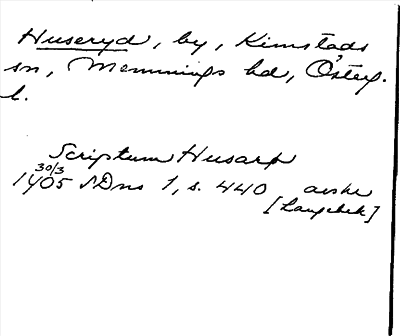 Huseryd, by, Kimstads
sn, Memmings hd, Österg.
l.
Scriptum Husarp
30/3
1405 SDns 1, s. 440 avskr
[Langebek]